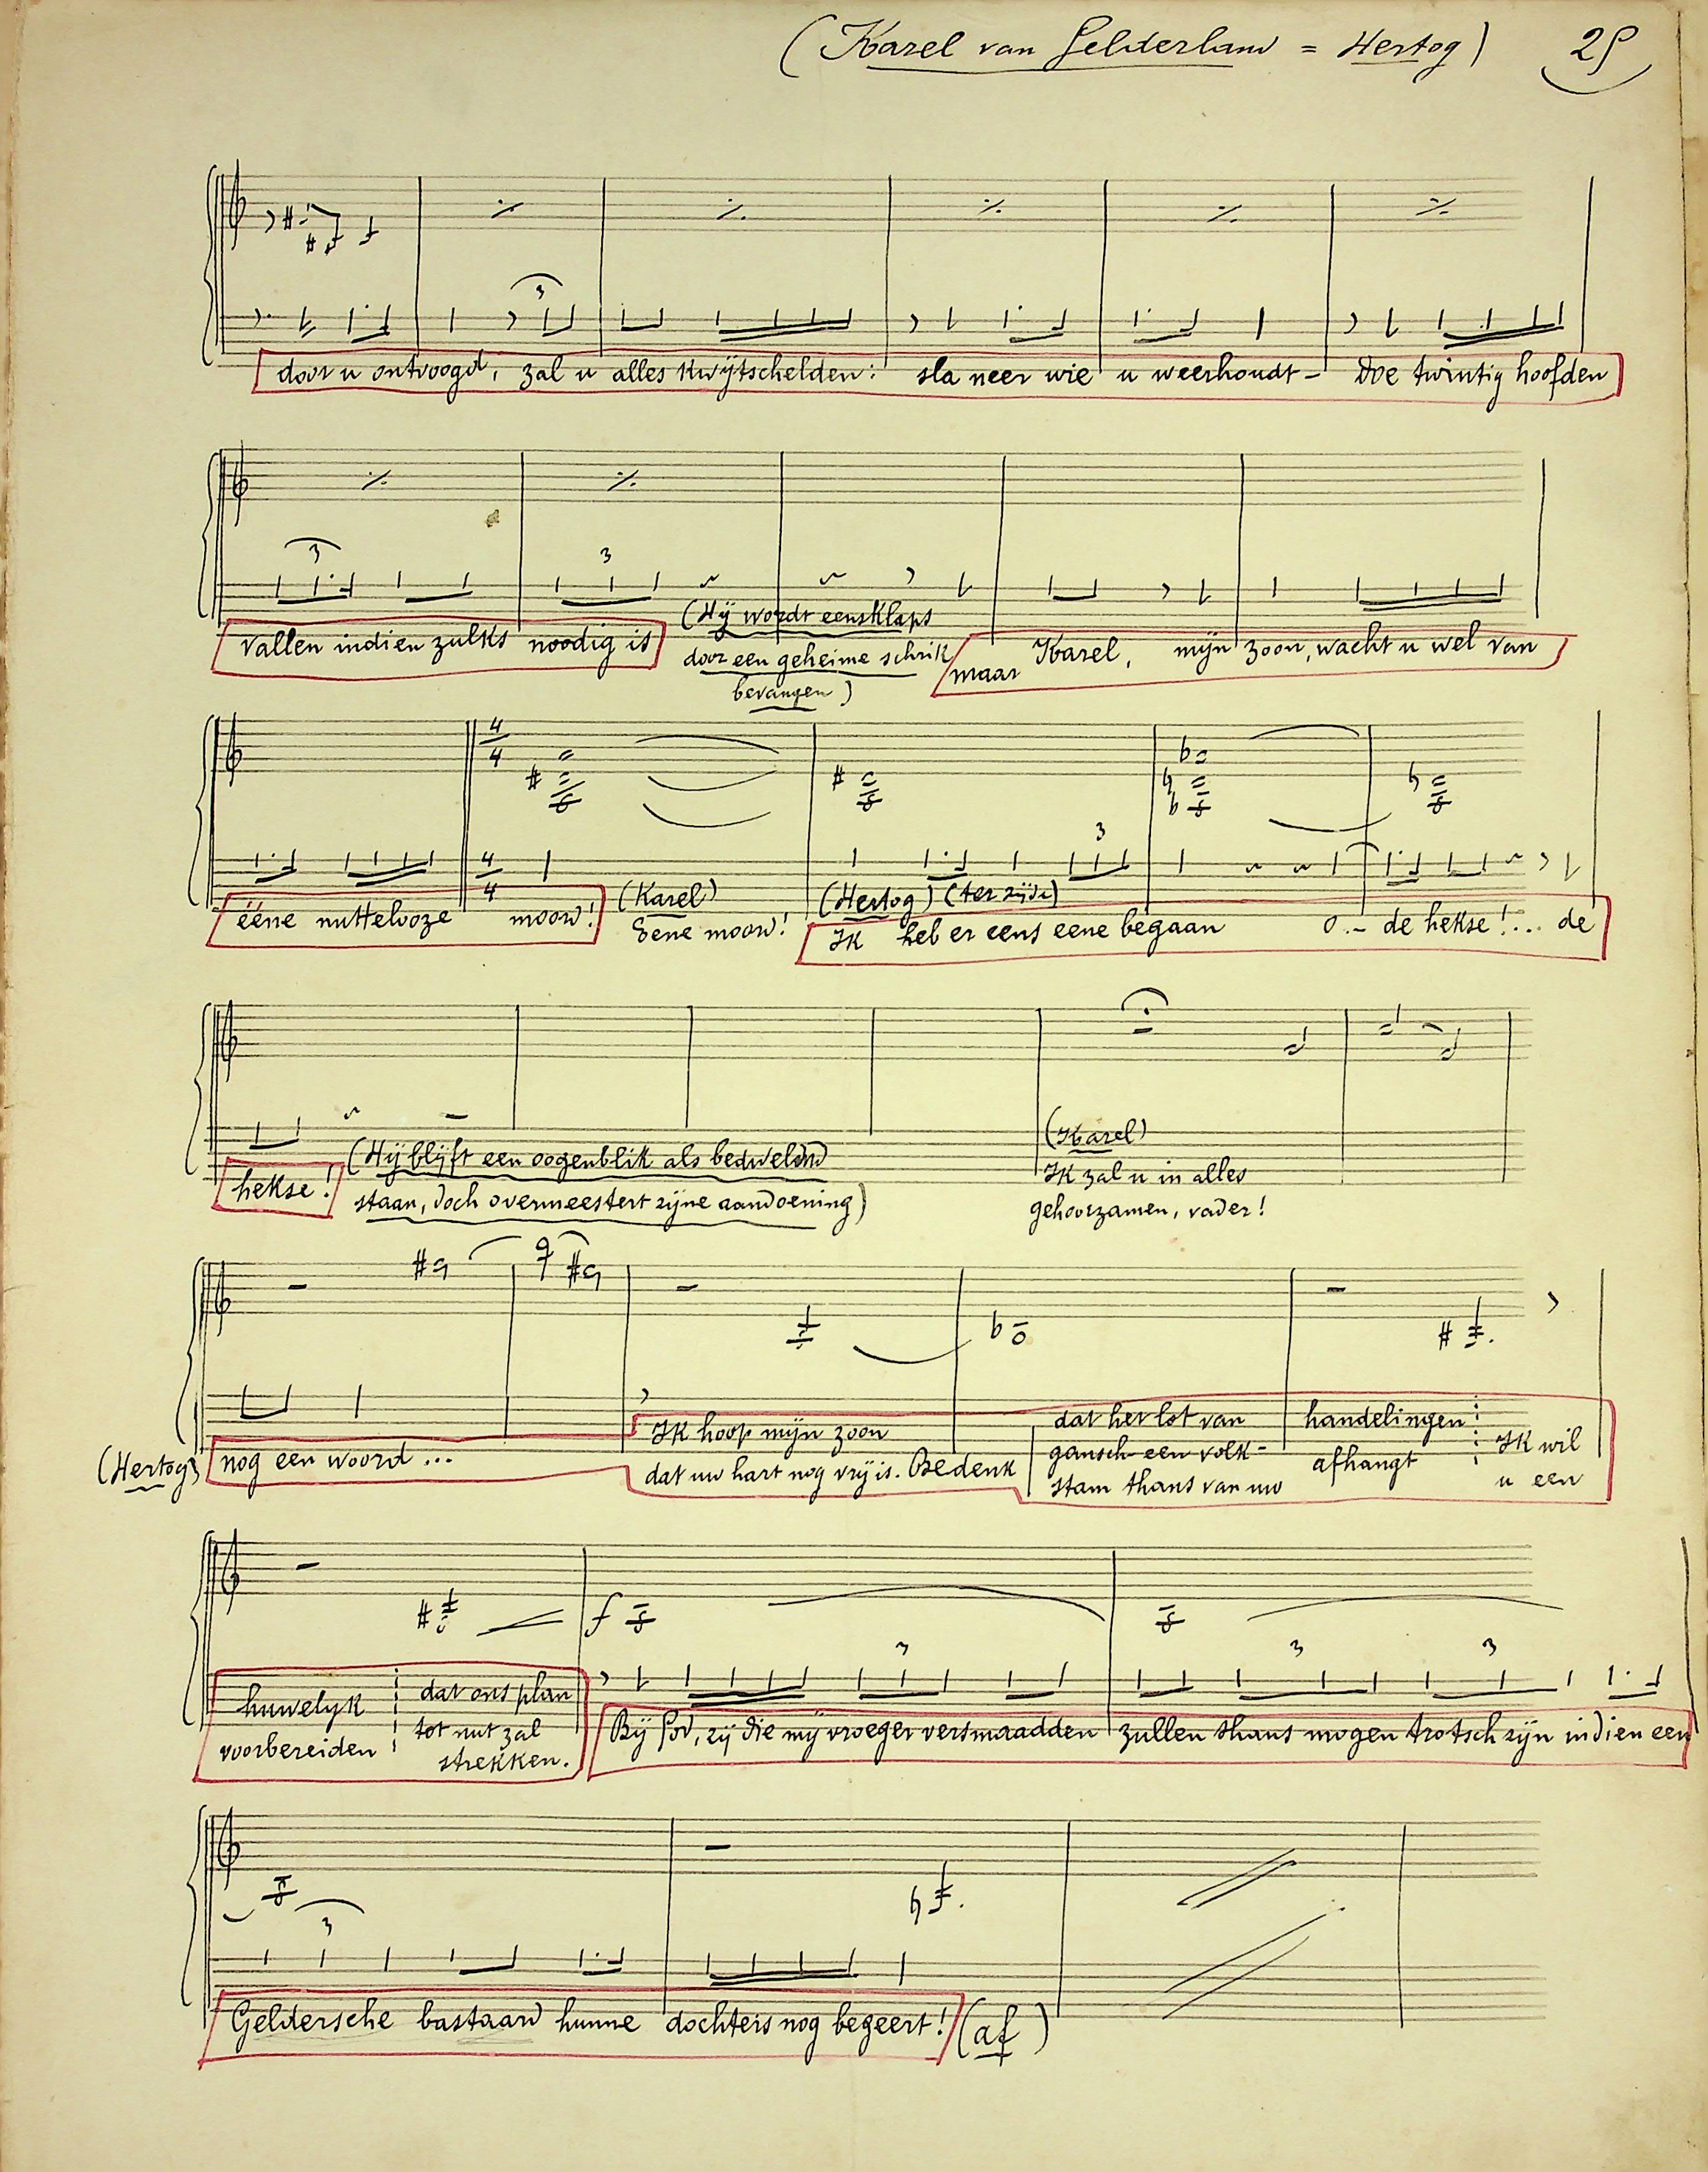 (Karel van Gelderland = Hertog) 29
3
door u ontvoogd, zal u alles kwijtschelden: sla neer wie u weerhoudt - Doe twintig hoofden
3 3
vallen indien zulks noodig is (Hij wordt eensklaps
door een geheime schrik
bevangen)
maar Karel, mijn zoon, wacht u wel van
4 4
3
4 4
ééne nuttelooze moord! (Karel) Eene moord! (Hertog) (ter zijde)
Ik heb er eens eene begaan o.- de hekse!... de
hekse! (Hij blijft een oogenblik als bedwelmd
staan, doch overmeestert zijne aandoening)
(Karel)
Ik zal u in alles
gehoorzamen, vader!
(Hertog) nog een woord...
Ik hoop mijn zoon
dat uw hart nog vrij is. Bedenk
dat het lot van
gansch een volk-
stam thans van uw
handelingen
afhangt
Ik wil
u een
f
3 3 3
huwelijk
voorbereiden
dat ons plan
tot nut zal
strekken.
Bij God, zij die mij vroeger versmaadden zullen thans mogen trotsch zijn indien een
3
Geldersche bastaard hunne dochters nog begeert! (af)